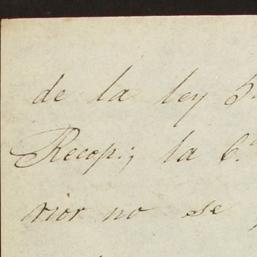 de la ley 5.
Recop; la 6.a
rior no se